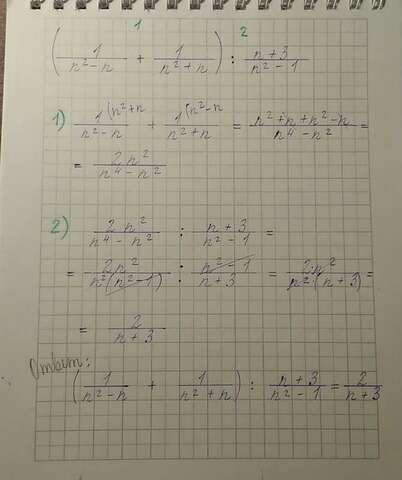 1 2
( 1/(n²-n) + 1/(n²+n) ) : (n+3)/(n²-1)
1) 1(n²+n/(n²-n) + 1(n²-n/(n²+n) = (n²+n+n²-n)/(n⁴-n²) =
= 2n²/(n⁴-n²)
2) 2n²/(n⁴-n²) : (n+3)/(n²-1) =
= 2n²/(n²(n²-1)) : (n²-1)/(n+3) = 2n²/(n²(n+3)) =
= 2/(n+3)
Ответ:
( 1/(n²-n) + 1/(n²+n) ) : (n+3)/(n²-1) = 2/(n+3)